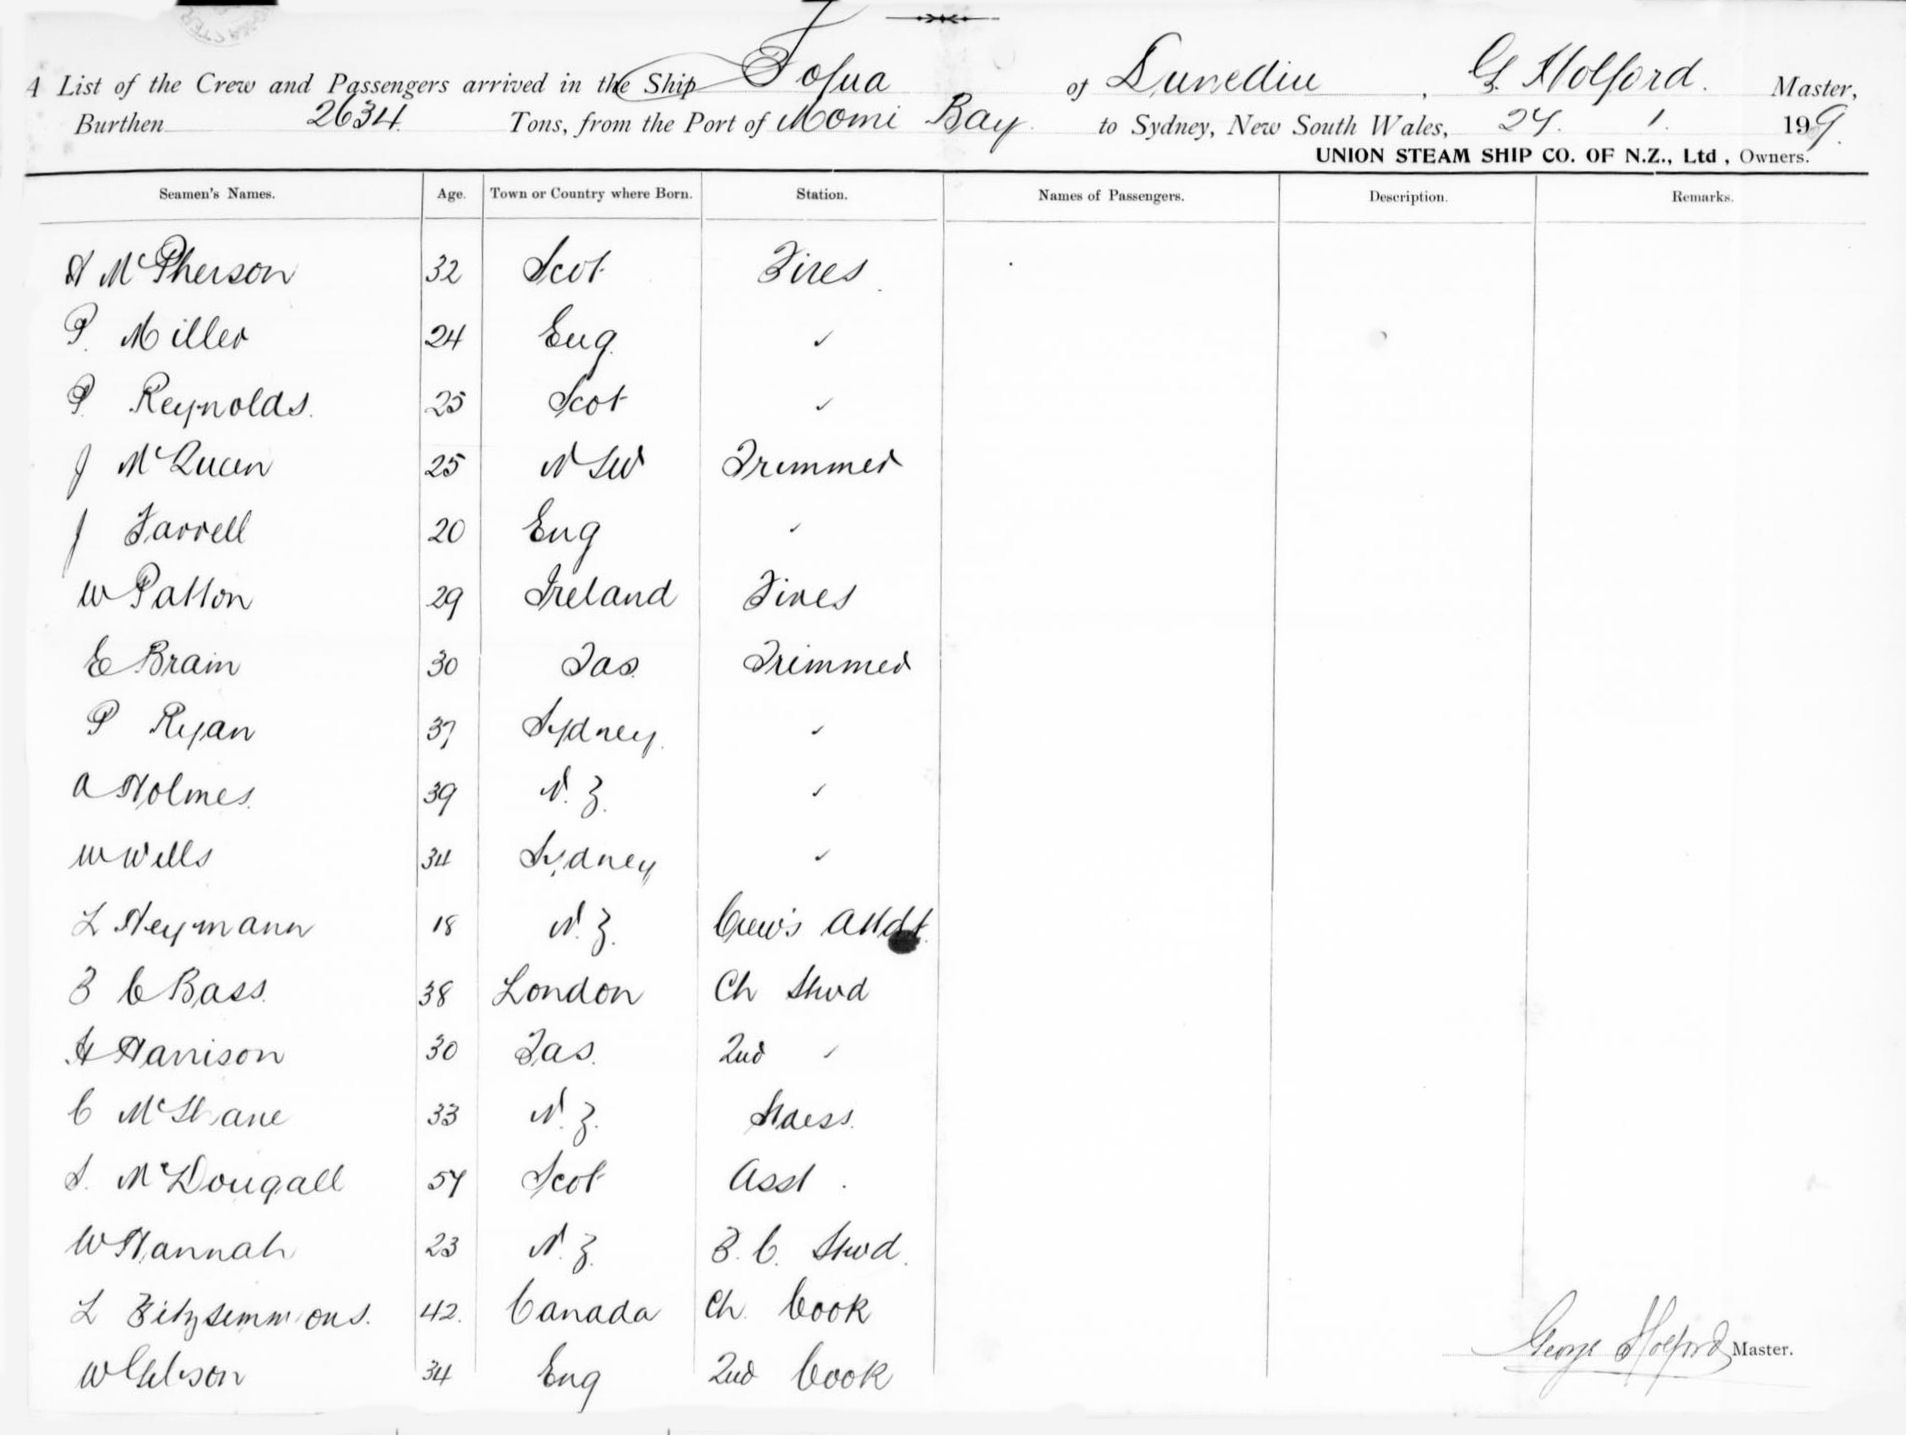 A List of the Crew and Passengers arrived in the Ship Tofua of Dunedin, G Holford. Master,
Burthen 2634 Tons, from the Port of Momi Bay to Sydney, New South Wales, 24. 1. 199.
UNION STEAM SHIP CO. OF N.Z., Ltd, Owners.
Seamen's Names. Age. Town or Country where Born. Station. Names of Passengers. Description. Remarks.
H McPherson 32 Scot Fires
P. Miller 24 Eng. ✓
P. Reynolds. 25 Scot ✓
J McQueen 25 N SW Trimmer
J Farrell 20 Eng ✓
W Patton 29 Ireland Fires
E Brain 30 Tas. Trimmer
P Ryan 37 Sydney. ✓
A Holmes. 39 N. Z. ✓
W Wells 34 Sydney ✓
L Heymann 18 N. Z. Crew's Attdt.
F C Bass. 38 London Ch Stwd
H Harrison 30 Tas. 2nd ✓
C McShane 33 N. Z. Stdess.
S. McDougall 54 Scot Asst.
W Hannah 23 N. Z. B. C. Stwd.
L Fitzsimmons. 42. Canada Ch. Cook
W Gibson 34 Eng 2nd Cook
George Holford Master.